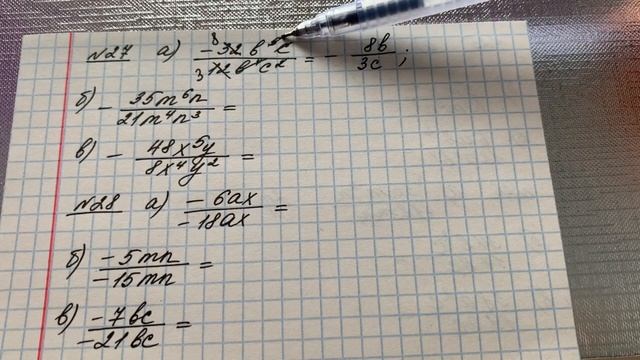 №27 а) -32b⁵c/12b⁴c² = - 8b/3c ;
б) - 35m⁶n/21m⁴n³ =
в) - 48x⁵y/8x⁴y² =
№28 а) -6ax/-18ax =
б) -5mn/-15mn =
в) -7bc/-21bc =